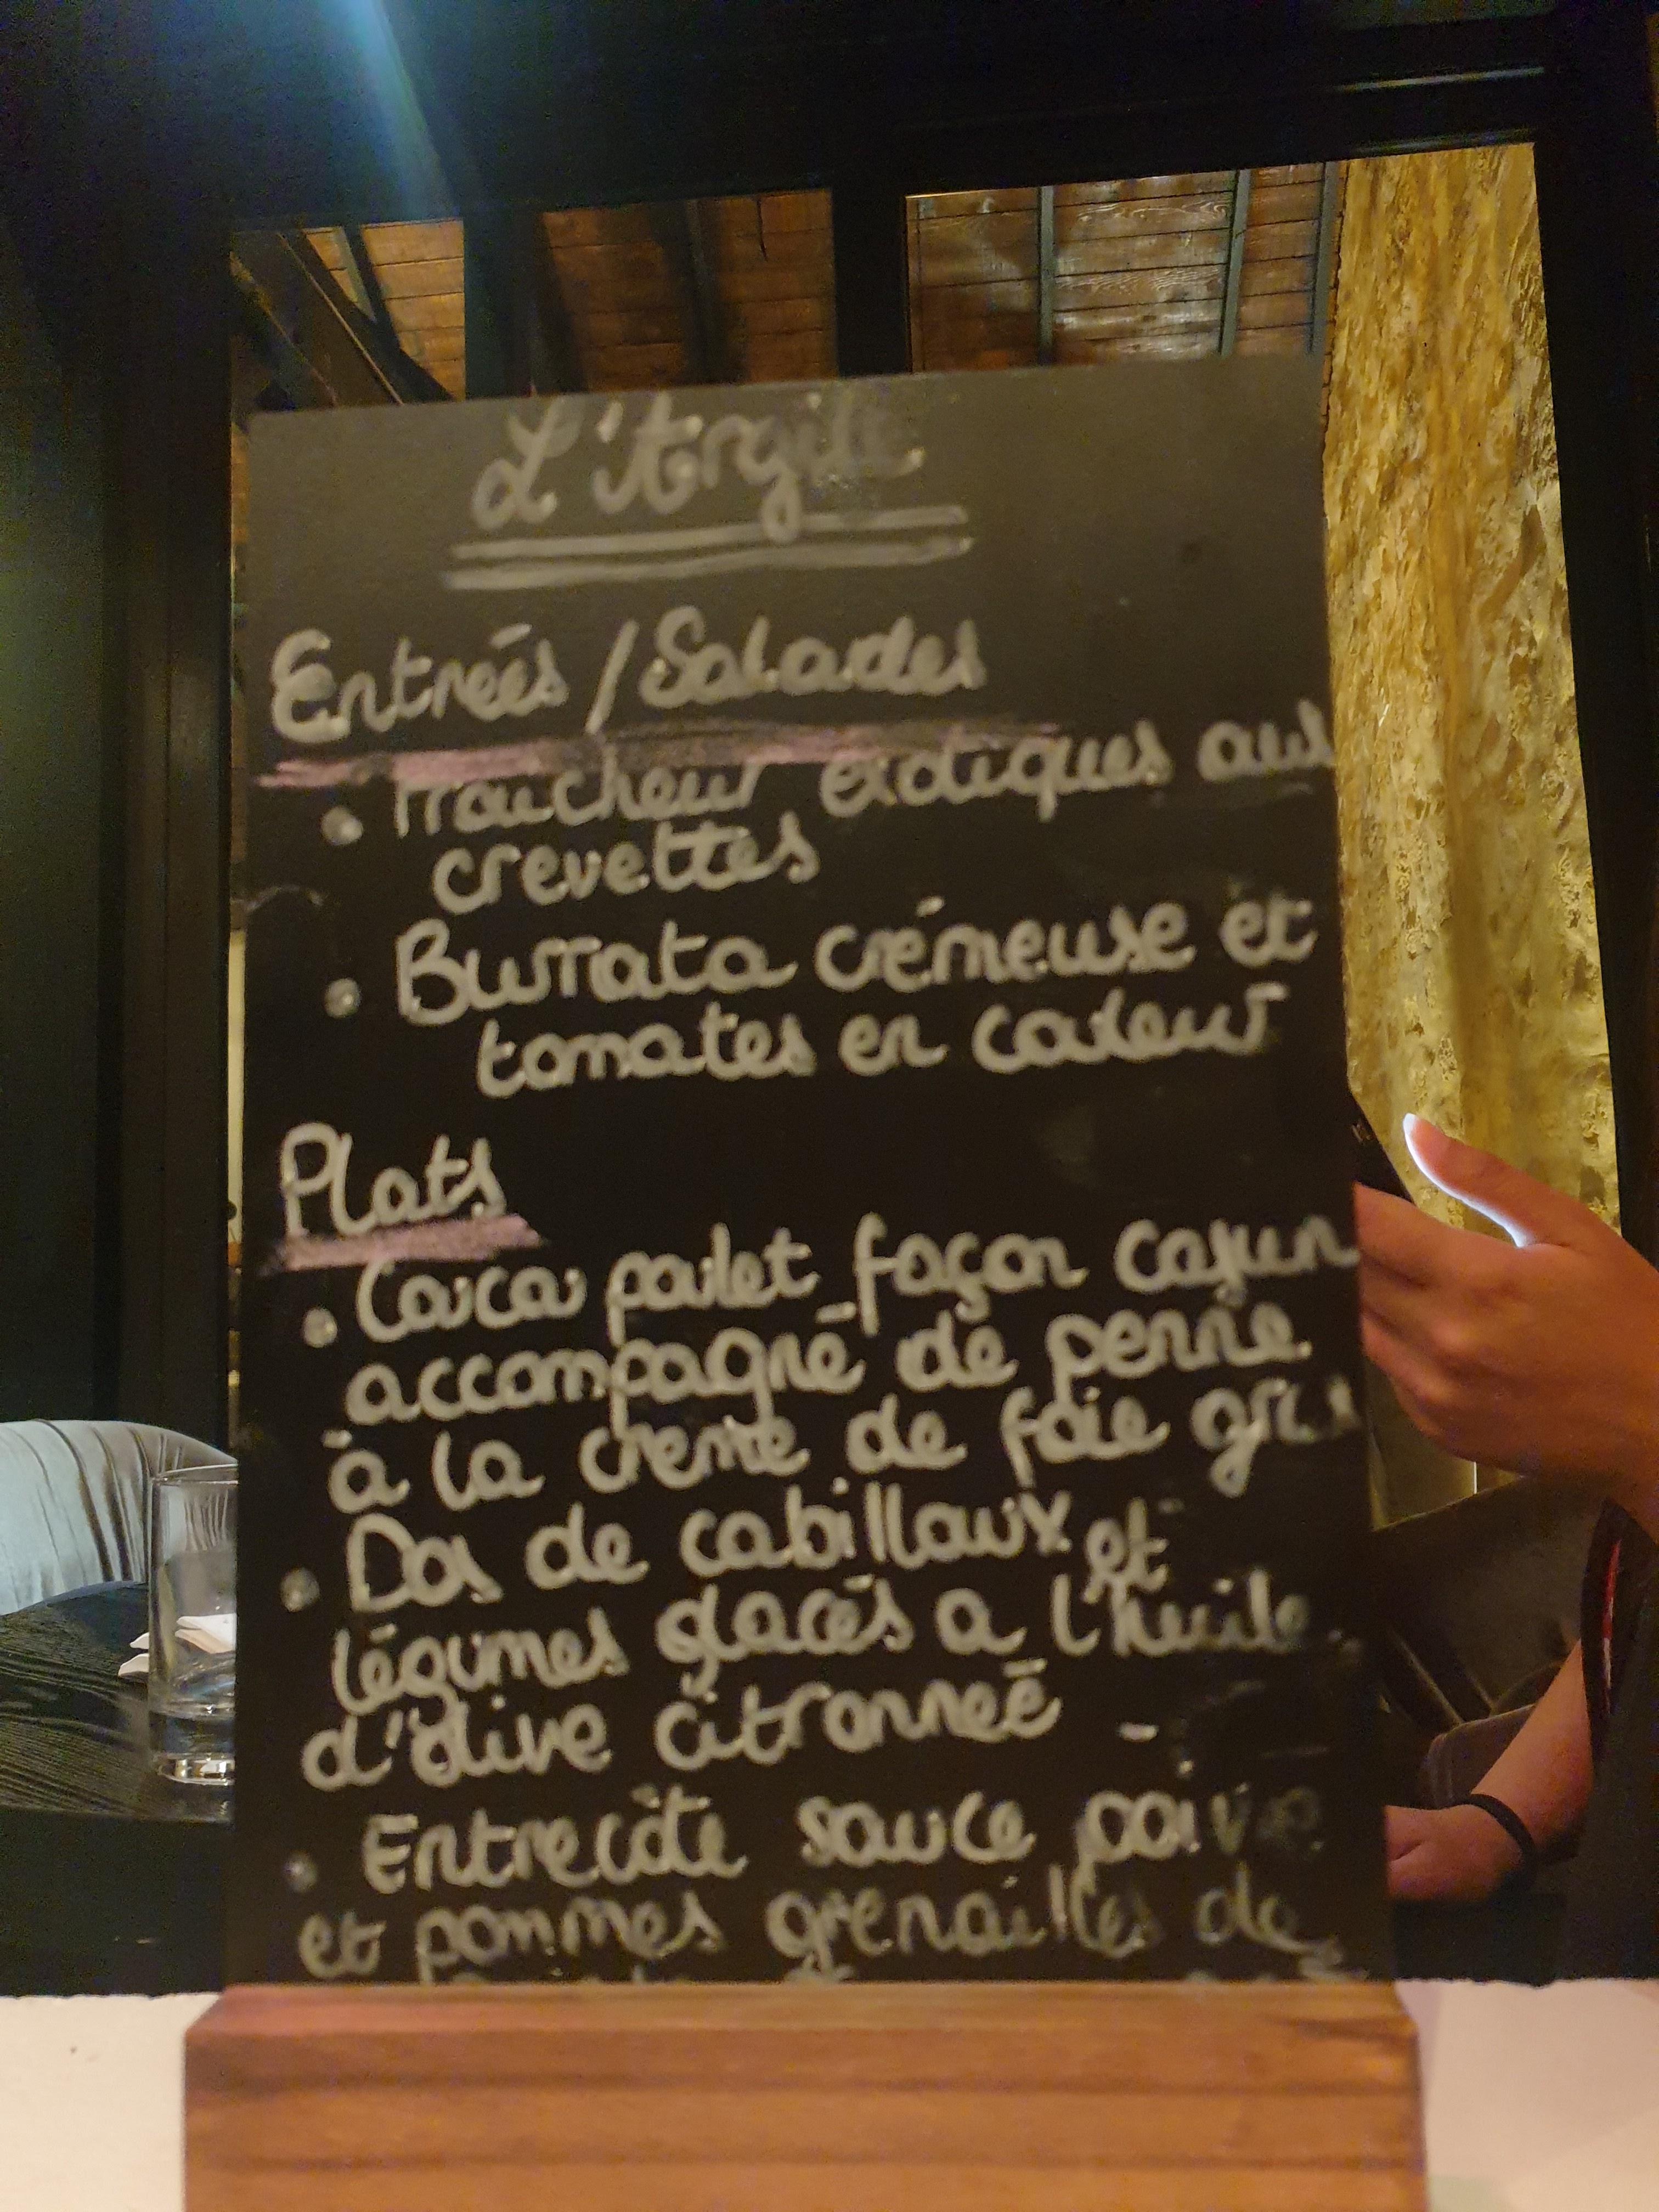 L'Argile
Entrées / Salades
• Fraicheur exotiques aux
crevettes
• Burrata crémeuse et
tomates en couleur
Plats
• poulet façon cajun
accompagné de penne
à la creme de foie gras
• Dos de cabillaux et
légumes glacés a l'huile
d'olive citronneé
• Entrecôte sauce poivre
et pommes grenailles de